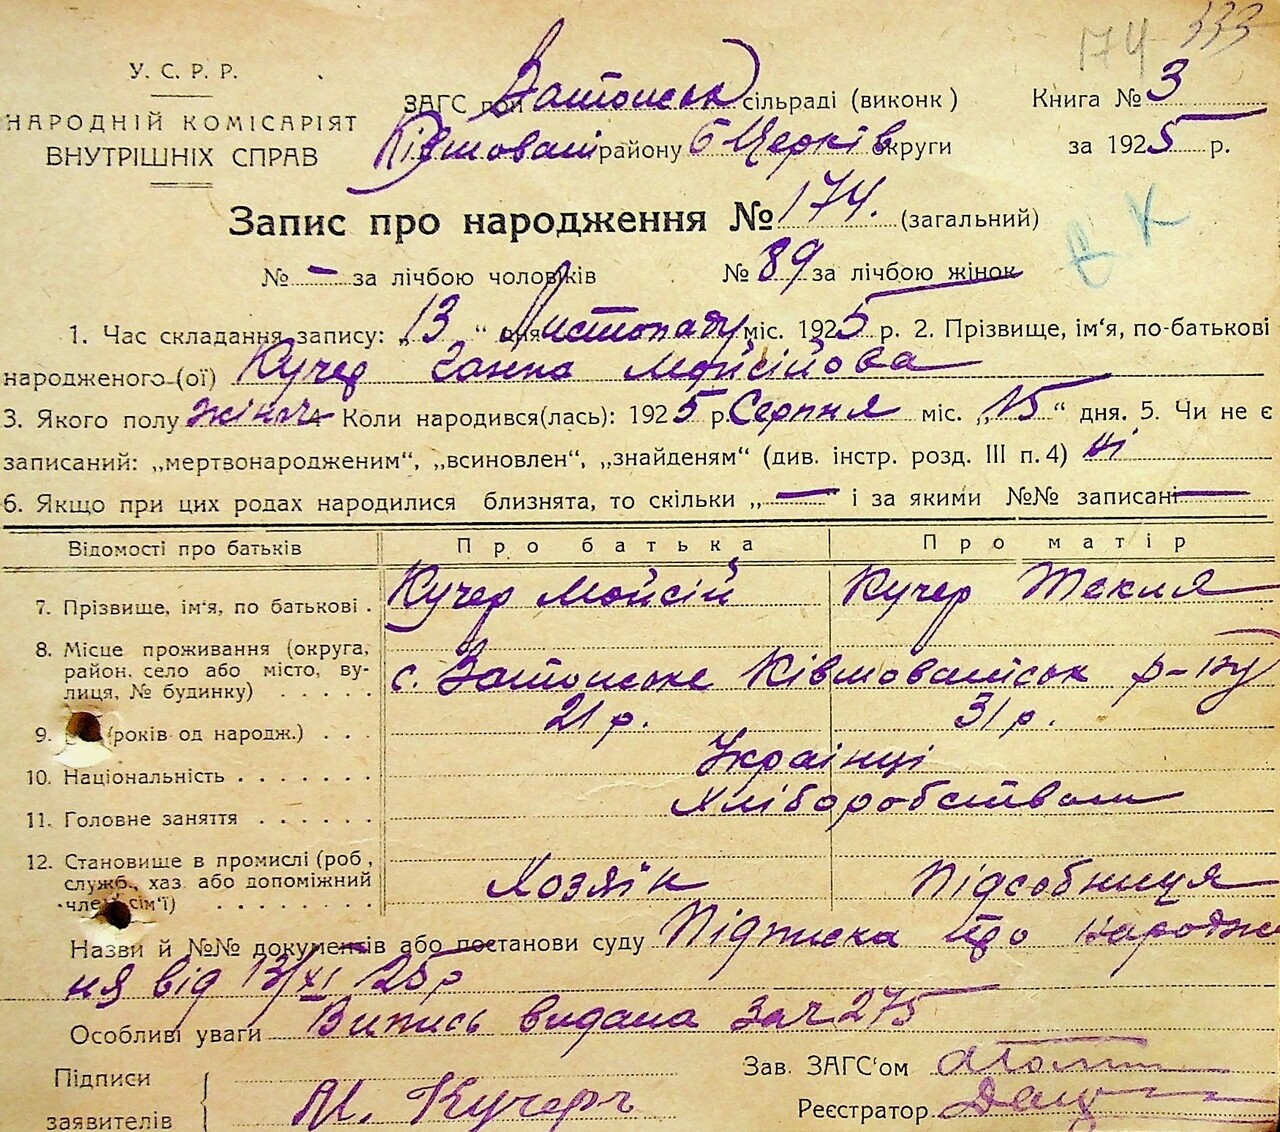 174 333
У. С. Р. Р.
НАРОДНІЙ КОМІСАРІЯТ
ВНУТРІШНІХ СПРАВ
ЗАГС при Затонськ сільраді (виконк)
Книга № 3
району Б Церків округи
за 1925 р.
Запис про народження № 174. (загальний)
№ — за лічбою чоловіків № 89 за лічбою жінок
В К
1. Час складання запису: „13“ дня Листопаду міс. 1925 р. 2. Прізвище, ім‘я, по-батькові
народженого (ої) Кучер Ганна Мойсійова
3. Якого полу жіноч 4 Коли народився(лась): 1925 р. Серпня міс. „15“ дня. 5. Чи не є
записаний: „мертвонародженим“, „всиновлен“, „знайденям“ (див. інстр. розд. III п. 4) ні
6. Якщо при цих родах народилися близнята, то скільки „— і за якими №№ записані —
Відомості про батьків Про батька Про матір
7. Прізвище, ім‘я, по батькові . Кучер Мойсій Кучер Текля
8. Місце проживання (округа,
район, село або місто, ву-
лиця, № будинку) . . . . . с. Затонське Ківшоватськ р-ну
9. (років од народж.) . . . 21 р. 31 р.
10. Національність . . . . . . . Українці
11. Головне заняття . . . . . . Хліборобством
12. Становище в промислі (роб,
служб., хаз або допоміжний
член сім‘ї) . . . . . . . . Хозяїн Підсобниця
Назви й №№ документів або постанови суду Підписка про народжен
ня від 13/XI 25 р
Особливі уваги Випись видана за ч 275
Підписи
заявителів М. Кучер
Зав. ЗАГС‘ом
Реєстратор